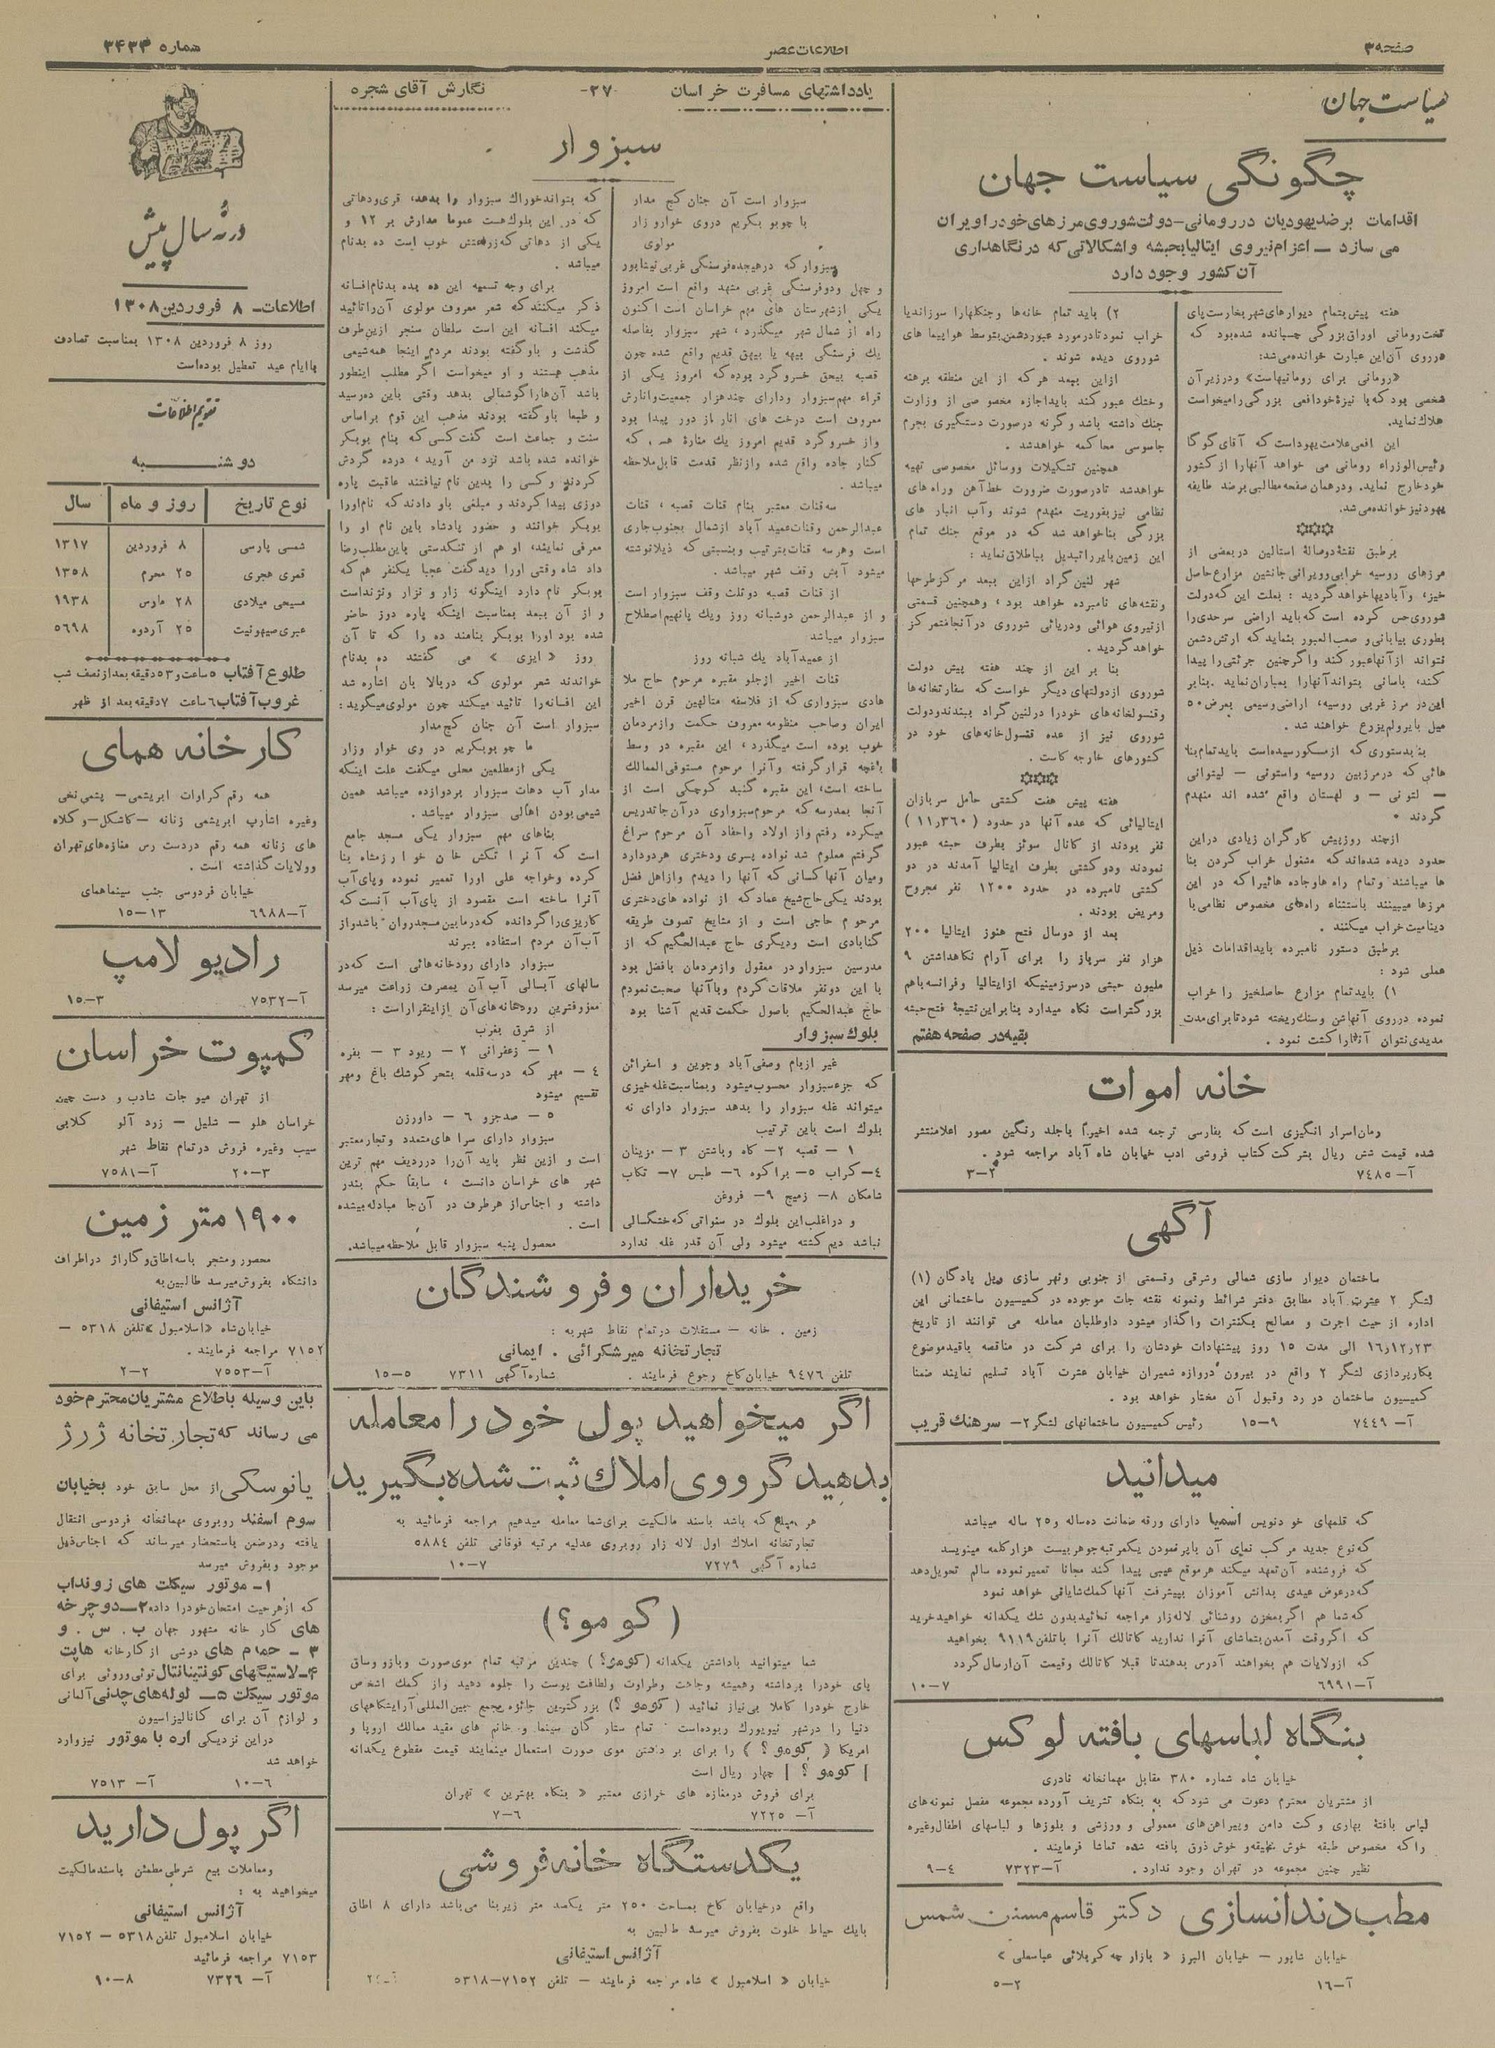 صفحه ۳
اطلاعات عصر
شماره ۳۴۳۳
سیاست جهان
چگونگی سیاست جهان
اقدامات بر ضد یهودیان در رومانی – دولت شوروی مرزهای خود را ویران
می سازد – اعزام نیروی ایتالیا بحبشه و اشکالاتی که در نگاهداری
آن کشور وجود دارد
هفته پیش بتمام دیوارهای شهر بخارست پای
تخت رومانی اوراق بزرگی چسبانده شده بود که
بر روی آن این عبارت خوانده می‌شد:
«رومانی برای رومانیهاست» و در زیر آن
شخصی بود که با نیزهٔ خود افعی بزرگی را میخواست
هلاک نماید.
این افعی علامت یهود است که آقای گوگا
رئیس الوزراء رومانی می خواهد آنها را از کشور
خود خارج نماید. و در همان صفحه مطالبی بر ضد طایفه
یهود نیز خوانده می‌شد.
بر طبق نقشهٔ دو سالهٔ استالین در بعضی از
مرزهای روسیه خرابی و ویرانی جانشین مزارع حاصل
خیز، و آبادیها خواهد گردید : بعلت این که دولت
شوروی حس کرده است که باید اراضی سرحدی را
بطوری بیابانی و صعب العبور بنماید که ارتش دشمن
نتواند از آنها عبور کند و اگر چنین جرئتی را پیدا
کند، باسانی بتواند آنها را بمباران نماید. بنابر
این در مرز غربی روسیه، اراضی وسیعی بعرض ۵۰
میل بایر و لم یزرع خواهند شد.
بنا بدستوری که از مسکو رسیده است باید تمام بنا
هائی که در مرز بین روسیه و استونی – لیتوانی
– لتونی – و لهستان واقع شده اند منهدم
گردند.
از چند روز پیش کارگران زیادی در این
حدود دیده شده‌اند که مشغول خراب کردن بنا
ها میباشند و تمام راه ها و جاده هائیرا که در این
مرزها میبینند باستثناء راه‌های مخصوص نظامی با
دینامیت خراب میکنند.
بر طبق دستور نامبرده باید اقدامات ذیل
عملی شود :
۱) باید تمام مزارع حاصلخیز را خراب
نموده در روی آنها شن و سنگ ریخته شود تا برای مدت
مدیدی نتوان آنها را کشت نمود.
۲) باید تمام خانه‌ها و جنگلها را سوزاند یا
خراب نمود تا در مورد عبور دشمن بتوسط هواپیما های
شوروی دیده شوند.
از این ببعد هر که از این منطقه برهنه
و خشک عبور کند باید اجازه مخصوصی از وزارت
جنگ داشته باشد و گرنه در صورت دستگیری بجرم
جاسوسی محاکمه خواهد شد.
همچنین تشکیلات و وسائل مخصوصی تهیه
خواهد شد تا در صورت ضرورت خط آهن و راه های
نظامی نیز بفوریت منهدم شوند و آب انبار های
بزرگی بنا خواهد شد که در موقع جنگ تمام
این زمین بایر را تبدیل بباطلاق نماید :
شهر لنین گراد از این ببعد مرکز طرحها
و نقشه‌های نامبرده خواهد بود، و همچنین قسمتی
از نیروی هوائی و دریائی شوروی در آنجا متمرکز
خواهد گردید.
بنا بر این از چند هفته پیش دولت
شوروی از دولتهای دیگر خواست که سفارتخانه‌ها
و قنسولخانه‌های خود را در لنین گراد ببندند و دولت
شوروی نیز از عده قنسول خانه‌های خود در
کشورهای خارجه کاست.
هفته پیش هفت کشتی حامل سربازان
ایتالیائی که عده آنها در حدود (۱۱٫۳۶۰)
نفر بودند از کانال سوئز بطرف حبشه عبور
نمودند و دو کشتی بطرف ایتالیا آمدند در دو
کشتی نامبرده در حدود ۱۲۰۰ نفر مجروح
و مریض بودند.
بعد از دو سال فتح هنوز ایتالیا ۲۰۰
هزار نفر سرباز را برای آرام نگاهداشتن ۹
ملیون حبشی در سرزمینیکه از ایتالیا و فرانسه باهم
بزرگتر است نگاه میدارد بنابر این نتیجهٔ فتح حبشه
بقیه در صفحه هفتم
خانه اموات
رمان اسرار انگیزی است که بفارسی ترجمه شده اخیراً با جلد رنگین مصور اعلا منتشر
شده قیمت شش ریال بشرکت کتاب فروشی ادب خیابان شاه آباد مراجعه شود.
آ– ۷۴۸۵ ۲–۳
آگهی
ساختمان دیوار سازی شمالی و شرقی و قسمتی از جنوبی و نهر سازی ویل پادگان (۱)
لشگر ۲ عشرت آباد مطابق دفتر شرائط و نمونه نقشه جات موجوده در کمیسیون ساختمانی این
اداره از حیث اجرت و مصالح بکنترات واگذار میشود داوطلبان معامله می توانند از تاریخ
۱۶٫۱۲٫۲۳ الی مدت ۱۵ روز پیشنهادات خودشان را برای شرکت در مناقصه باقید موضوع
بکارپردازی لشگر ۲ واقع در بیرون دروازه شمیران خیابان عشرت آباد تسلیم نمایند ضمنا
کمیسیون ساختمان در رد و قبول آن مختار خواهد بود.
آ– ۷۴۴۹ ۹–۱۵ رئیس کمیسیون ساختمانهای لشگر ۲– سرهنگ قریب
میدانید
که قلمهای خود نویس اسمیا دارای ورقه ضمانت ده ساله و ۲۵ ساله میباشد
که نوع جدید مرکب نمای آن با پر نمودن یکمرتبه جوهر بیست هزار کلمه مینویسد
که فروشنده آن تعهد میکند هر موقع عیبی پیدا کند مجانا تعمیر نموده سالم تحویل دهد
که در عوض عیدی بدانش آموزان بپیشرفت آنها کمک شایانی خواهد نمود
که شما هم اگر بمخزن روشنائی لاله زار مراجعه نمائید بدون شک یکدانه خواهید خرید
که اگر وقت آمدن بتماشای آنرا ندارید کاتالک آنرا با تلفن ۹۱۱۹ بخواهید
که از ولایات هم بخواهند آدرس بدهند تا قبلا کاتالک و قیمت آن ارسال گردد
آ– ۶۹۹۱ ۷–۱۰
بنگاه لباسهای بافته لوکس
خیابان شاه شماره ۳۸۰ مقابل مهمانخانه نادری
از مشتریان محترم دعوت می شود که به بنگاه تشریف آورده مجموعه مفصل نمونه‌های
لباس بافتهٔ بهاری و کت دامن و پیراهن‌های معمولی و ورزشی و بلوزها و لباسهای اطفال و غیره
را که مخصوص طبقه خوش سلیقه و خوش ذوق بافته شده تماشا فرمایند.
نظیر چنین مجموعه در تهران وجود ندارد. آ–۷۳۲۳ ۴–۹
مطب دندانسازی دکتر قاسم مسنن شمس
خیابان شاپور – خیابان البرز « بازارچه کربلائی عباسعلی »
آ–۱۶ ۲–۵
یادداشتهای مسافرت خراسان
–۲۷
نگارش آقای شجره
سبزوار
سبزوار است آن جنان کج مدار
ما چو بوبکریم در وی خوار و زار
مولوی
سبزوار که در هیجده فرسنگی غربی نیشابور
و چهل و دو فرسنگی غربی مشهد واقع است امروز
یکی از شهرستان های مهم خراسان است اکنون
راه از شمال شهر میگذرد، شهر سبزوار بفاصله
یک فرسنگی بیهه یا بیهق قدیم واقع شده چون
قصبه بیحق خسرو گرد بوده که امروز یکی از
قراء مهم سبزوار و دارای چند هزار جمعیت و انارش
معروف است درخت های انار از دور پیدا بود
و از خسرو گرد قدیم امروز یک مناره هست که
کنار جاده واقع شده و از نظر قدمت قابل ملاحظه
میباشد.
سه قنات معتبر بنام قنات قصبه، قنات
عبدالرحمن و قنات عمید آباد از شمال بجنوب جاری
است و هر سه قنات بترتیب و بنسبتی که ذیلا نوشته
میشود آبش وقف شهر میباشد.
از قنات قصبه دو ثلث وقف سبزوار است
و از عبدالرحمن دو شبانه روز و یک پانهیم اصطلاح
سبزوار میباشد
از عمید آباد یک شبانه روز
قنات اخیر از جلو مقبره مرحوم حاج ملا
هادی سبزواری که از فلاسفه متالهین قرن اخیر
ایران و صاحب منظومه معروف حکمت و از مردمان
خوب بوده است میگذرد، این مقبره در وسط
باغچه قرار گرفته و آنرا مرحوم مستوفی الممالک
ساخته است، این مقبره گنبد کوچکی است از
آنجا بمدرسه که مرحوم سبزواری در آن جا تدریس
میکرده رفتم و از اولاد و احفاد آن مرحوم سراغ
گرفتم معلوم شد نواده پسری و دختری هر دو دارد
و میان آنها کسانی که آنها را دیدم و از اهل فضل
بودند یکی حاج شیخ عماد که از نواده های دختری
مرحوم حاجی است و از مشایخ تصوف طریقه
گنابادی است و دیگری حاج عبدالحکیم که از
مدرسین سبزوار در معقول و از مردمان بافضل بود
با این دو نفر ملاقات کردم و با آنها صحبت نمودم
حاج عبدالحکیم باصول حکمت قدیم آشنا بود
بلوک سبزوار
غیر از بام و صفی آباد و جوین و اسفرائن
که جزء سبزوار محسوب میشود و بمناسبت غله خیزی
میتواند غله سبزوار را بدهد سبزوار دارای نه
بلوک است باین ترتیب
۱ – قصبه ۲– کاه و باشتن ۳ – مزینان
۴– کراب ۵– براکوه ۶– طبس ۷– تکاب
شامکان ۸– زمیج ۹– فروغن
و در اغلب این بلوک در سنواتی که خشگسالی
نباشد دیم کشته میشود ولی آن قدر غله ندارد
که بتواند خوراک سبزوار را بدهد، قری و دهاتی
که در این بلوک هست عموما مدارش بر ۱۲ و
یکی از دهاتی که زراعتش خوب است ده بدنام
میباشد.
برای وجه تسمیه این ده بده بدنام افسانه
ذکر میکنند که شعر معروف مولوی آن را تائید
میکند افسانه این است سلطان سنجر ازین طرف
گذشت و باو گفته بودند مردم اینجا همه شیعی
مذهب هستند و او میخواست اگر مطلب اینطور
باشد آن ها را گوشمالی بدهد وقتی باین ده رسید
و طبعا باو گفته بودند مذهب این قوم بر اساس
سنت و جماعت است گفت کسی که بنام بوبکر
خوانده شده باشد نزد من آرید، در ده گردش
کردند و کسی را بدین نام نیافتند عاقبت پاره
دوزی پیدا کردند و مبلغی باو دادند که نام او را
بوبکر خوانند و حضور پادشاه باین نام او را
معرفی نمایند، او هم از تنگدستی باین مطلب رضا
داد شاه وقتی او را دید گفت عجبا یکنفر هم که
بوبکر نام دارد اینگونه زار و نزار و نژند است
و از آن ببعد بمناسبت اینکه پاره دوز حاضر
شده بود او را بوبکر بنامند ده را که تا آن
روز «ایزی» می گفتند ده بدنام
خواندند شعر مولوی که در بالا بان اشاره شد
این افسانه را تائید میکند چون مولوی میگوید :
سبزوار است آن جنان کج مدار
ما چو بوبکریم در وی خوار و زار
یکی از مطلعین محلی میگفت علت اینکه
مدار آب دهات سبزوار بر دوازده میباشد همین
شیعی بودن اهالی سبزوار میباشد.
بناهای مهم سبزوار یکی مسجد جامع
است که آنرا تکش خان خوارزمشاه بنا
کرده و خواجه علی او را تعمیر نموده و پای آب
آنرا ساخته است مقسود از پای آب آنست که
کاریزی را گردانده که در مابین مسجد روان باشد و از
آب آن مردم استفاده ببرند
سبزوار دارای رودخانه هائی است که در
سالهای آبسالی آب آن بمصرف زراعت میرسد
معروفترین رودخانه های آن از اینقرار است :
از شرق بغرب
۱ – زعفرانی ۲ – ریود ۳ – بفره
۴ – مهر که در سه قلعه بنحر کوشک باغ و مهر
تقسیم میشود
۵ – صدجزو ۶ – داورزن
سبزوار دارای سرا های متعدد و تجار معتبر
است و ازین نظر باید آن را در ردیف مهم ترین
شهر های خراسان دانست، سابقا حکم بندر
داشته و اجناس از هر طرف در آن جا مبادله میشده
است.
محصول پنبه سبزوار قابل ملاحظه میباشد.
خریداران و فروشندگان
زمین . خانه – مستقلات در تمام نقاط شهر به :
تجارتخانه میرشکرائی . ایمانی
تلفن ۹۴۷۶ خیابان کاخ رجوع فرمایند. شماره آگهی ۷۳۱۱ ۵–۱۵
اگر میخواهید پول خود را معامله
بدهید گرو وی املاک ثبت شده بگیرید
هر مبلغ که باشد باسند مالکیت برای شما معامله میدهیم مراجعه فرمائید به
تجارتخانه املاک اول لاله زار روبروی عدلیه مرتبه فوقانی تلفن ۵۸۸۴
شماره آگهی ۷۲۷۹ ۷–۱۰
(کومو؟)
شما میتوانید باداشتن یکدانه (کومو؟) چندین مرتبه تمام موی صورت و بازو و ساق
پای خود را برداشته و همیشه وجاهت و طراوت و لطافت پوست را جلوه دهید و از کمک اشخاص
خارج خود را کاملا بی نیاز نمائید (کومو ؟) بزرگترین جائزه مجمع بین المللی آرایشگاههای
دنیا را در شهر نیویورک ربوده است تمام ستارگان سینما و خانم های مقید ممالک اروپا و
امریکا (کومو ؟) را برای برداشتن موی صورت استعمال مینمایند قیمت مقطوع یکدانه
[کومو ؟] چهار ریال است
برای فروش در مغازه های خرازی معتبر «بنگاه بهترین» تهران
آ– ۷۲۲۵ ۶–۷
یکدستگاه خانه فروشی
واقع در خیابان کاخ بمساحت ۲۵۰ متر یکصد متر زیر بنا می‌باشد دارای ۸ اطاق
بایک حیاط خلوت بفروش میرسد طالبین به
آژانس استیفانی
خیابان «اسلامبول» شاه مراجعه فرمایند – تلفن ۷۱۵۲–۵۳۱۸
در نه سال پیش
اطلاعات– ۸ فروردین ۱۳۰۸
روز ۸ فروردین ۱۳۰۸ بمناسبت تصادف
باایام عید تعطیل بوده است
تقویم اطلاعات
دوشنبه
نوع تاریخ | روز و ماه | سال
شمسی پارسی | ۸ فروردین | ۱۳۱۷
قمری هجری | ۲۵ محرم | ۱۳۵۸
مسیحی میلادی | ۲۸ مارس | ۱۹۳۸
عبری صیهونیت | ۲۵ آردوه | ۵۶۹۸
طلوع آفتاب ۵ ساعت و ۵۳ دقیقه بعد از نصف شب
غروب آفتاب ۶ ساعت ۷ دقیقه بعد از ظهر
کارخانه همای
همه رقم کراوات ابریشمی– پشمی نخی
وغیره اشارپ ابریشمی زنانه –کاشکل–و کلاه
های زنانه همه رقم در دست رس مغازه‌های تهران
و ولایات گذاشته است.
خیابان فردوسی جنب سینما همای
آ–۶۹۸۸ ۱۳–۱۵
رادیو لامپ
آ–۷۵۳۲ ۳–۱۵
کمپوت خراسان
از تهران میوجات شاداب و دست چین
خراسان هلو – شلیل – زرد آلو گلابی
سیب وغیره فروش در تمام نقاط شهر
۳–۲۰ آ–۷۵۸۱
۱۹۰۰ متر زمین
محصور و مشجر باسه اطاق و گاراژ در اطراف
دانشگاه بفروش میرسد طالبین به
آژانس استیفانی
خیابان شاه «اسلامبول» تلفن ۵۳۱۸ –
۷۱۵۲ مراجعه فرمایند.
آ–۷۵۵۳ ۲–۲
باین وسیله باطلاع مشتریان محترم خود
می رساند که تجارتخانه ژرژ
یانوسکی از محل سابق خود بخیابان
سوم اسفند روبروی مهمانخانه فردوسی انتقال
یافته و در ضمن باستحضار میرساند که اجناس ذیل
موجود و بفروش میرسد
۱– موتور سیکلت های زونداب
که از هر حیث امتحان خود را داده. ۲–دوچرخه
های کار خانه مشهور جهان ب . س . و
۳ – حمام های دوشی از کارخانه هاپت
۴–لاستیگهای کونتیناتال توئی و روئی برای
موتور سیکلت ۵– لوله های چدنی آلمانی
و لوازم آن برای کانالیزاسیون
در این نزدیکی اره با موتور نیز وارد
خواهد شد
۶–۱۰ آ– ۷۵۱۳
اگر پول دارید
و معاملات بیع شرطی مطمئن باسند مالکیت
میخواهید به :
آژانس استیفانی
خیابان اسلامبول تلفن ۵۳۱۸ – ۷۱۵۲
۷۱۵۳ مراجعه فرمائید
آ– ۷۳۲۶ ۸–۹۰